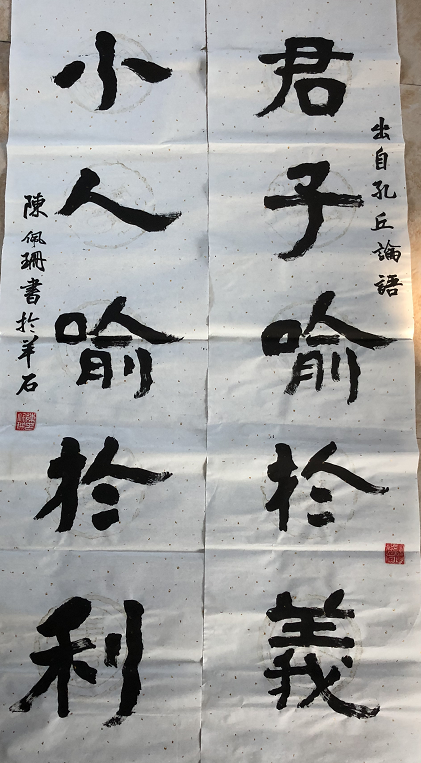 出自孔丘論語
君子喻於義
小人喻於利
陳佩珊書於羊石